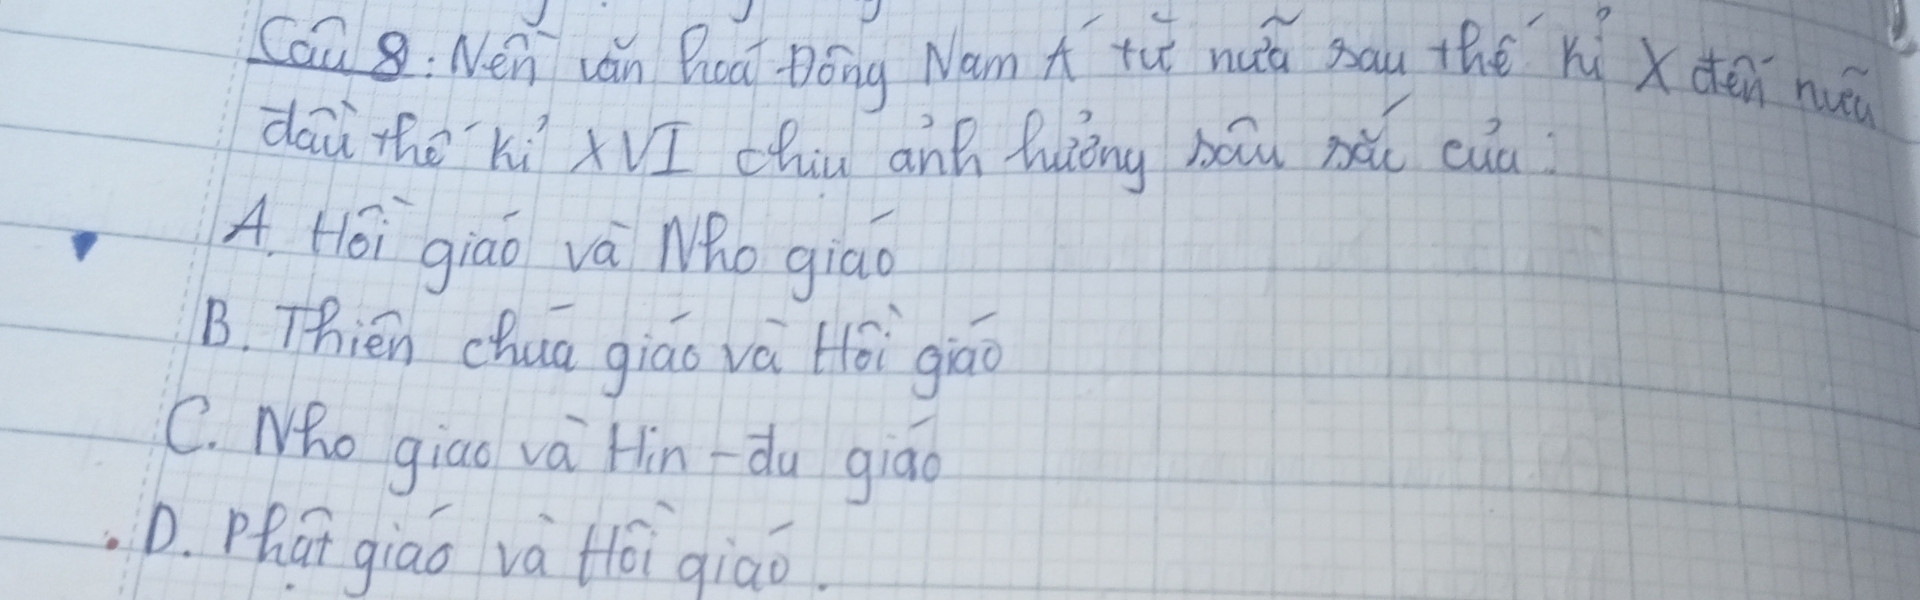 Câu 8: Nền văn hoá Đông Nam Á từ nửa sau thế kỉ X đến nửa
đầu thế kỉ XVI chịu ảnh hưởng sâu sắc của:
A. Hồi giáo và Nho giáo
B. Thiên chúa giáo và Hồi giáo
C. Nho giáo và Hin-đu giáo
D. Phật giáo và Hồi giáo.